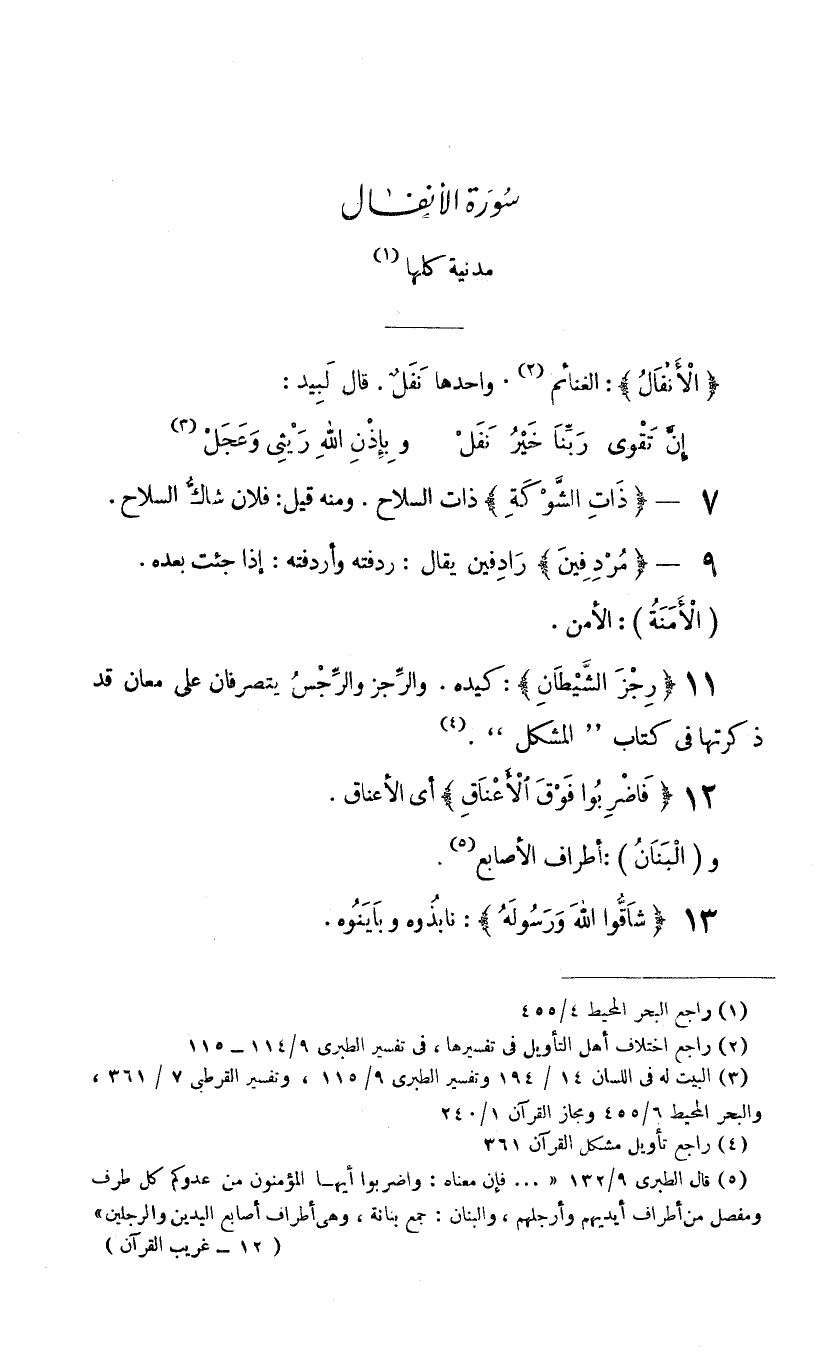 سُورَة الأنفال
مدنية كلها (١)
﴿ الْأَنْفَالُ ﴾ : الغنائم (٢) . واحدها نَفَلٌ . قال لَبِيد :
إِنَّ تَقْوى رَبِّنَا خَيْرُ نَفَلْ وبِإِذْنِ اللهِ رَيْثِى وَعَجَلْ (٣)
٧ — ﴿ ذَاتِ الشَّوْكَةِ ﴾ ذات السلاح . ومنه قيل: فلان شاكُّ السلاح .
٩ — ﴿ مُرْدِفِينَ ﴾ رَادِفين يقال : ردفته وأردفته : إذا جئت بعده .
( الْأَمَنَةُ ) : الأمن .
١١ ﴿ رِجْزَ الشَّيْطَانِ ﴾ : كيده . والرِّجز والرِّجْسُ يتصرفان على معان قد
ذكرتها فى كتاب ” المشكل “ . (٤)
١٢ ﴿ فَاضْرِبُوا فَوْقَ ٱلْأَعْنَاقِ ﴾ أى الأعناق .
و ( الْبَنَانُ ) : أطراف الأصابع (٥) .
١٣ ﴿ شَاقُّوا اللهَ وَرَسُولَهُ ﴾ : نابذُوه وبَايَنُوه .
(١) راجع البحر المحيط ٤/ ٤٥٥
(٢) راجع اختلاف أهل التأويل فى تفسيرها ، فى تفسير الطبرى ٩/ ١١٤ — ١١٥
(٣) البيت له فى اللسان ١٤ / ١٩٤ وتفسير الطبرى ٩/ ١١٥ ، وتفسير القرطبى ٧ / ٣٦١ ،
والبحر المحيط ٦/ ٤٥٥ ومجاز القرآن ١/ ٢٤٠
(٤) راجع تأويل مشكل القرآن ٣٦١
(٥) قال الطبرى ٩/ ١٣٢ « ... فإن معناه : واضربوا أيها المؤمنون من عدوكم كل طرف
ومفصل من أطراف أيديهم وأرجلهم ، والبنان : جمع بنانة ، وهى أطراف أصابع اليدين والرجلين»
( ١٢ — غريب القرآن )